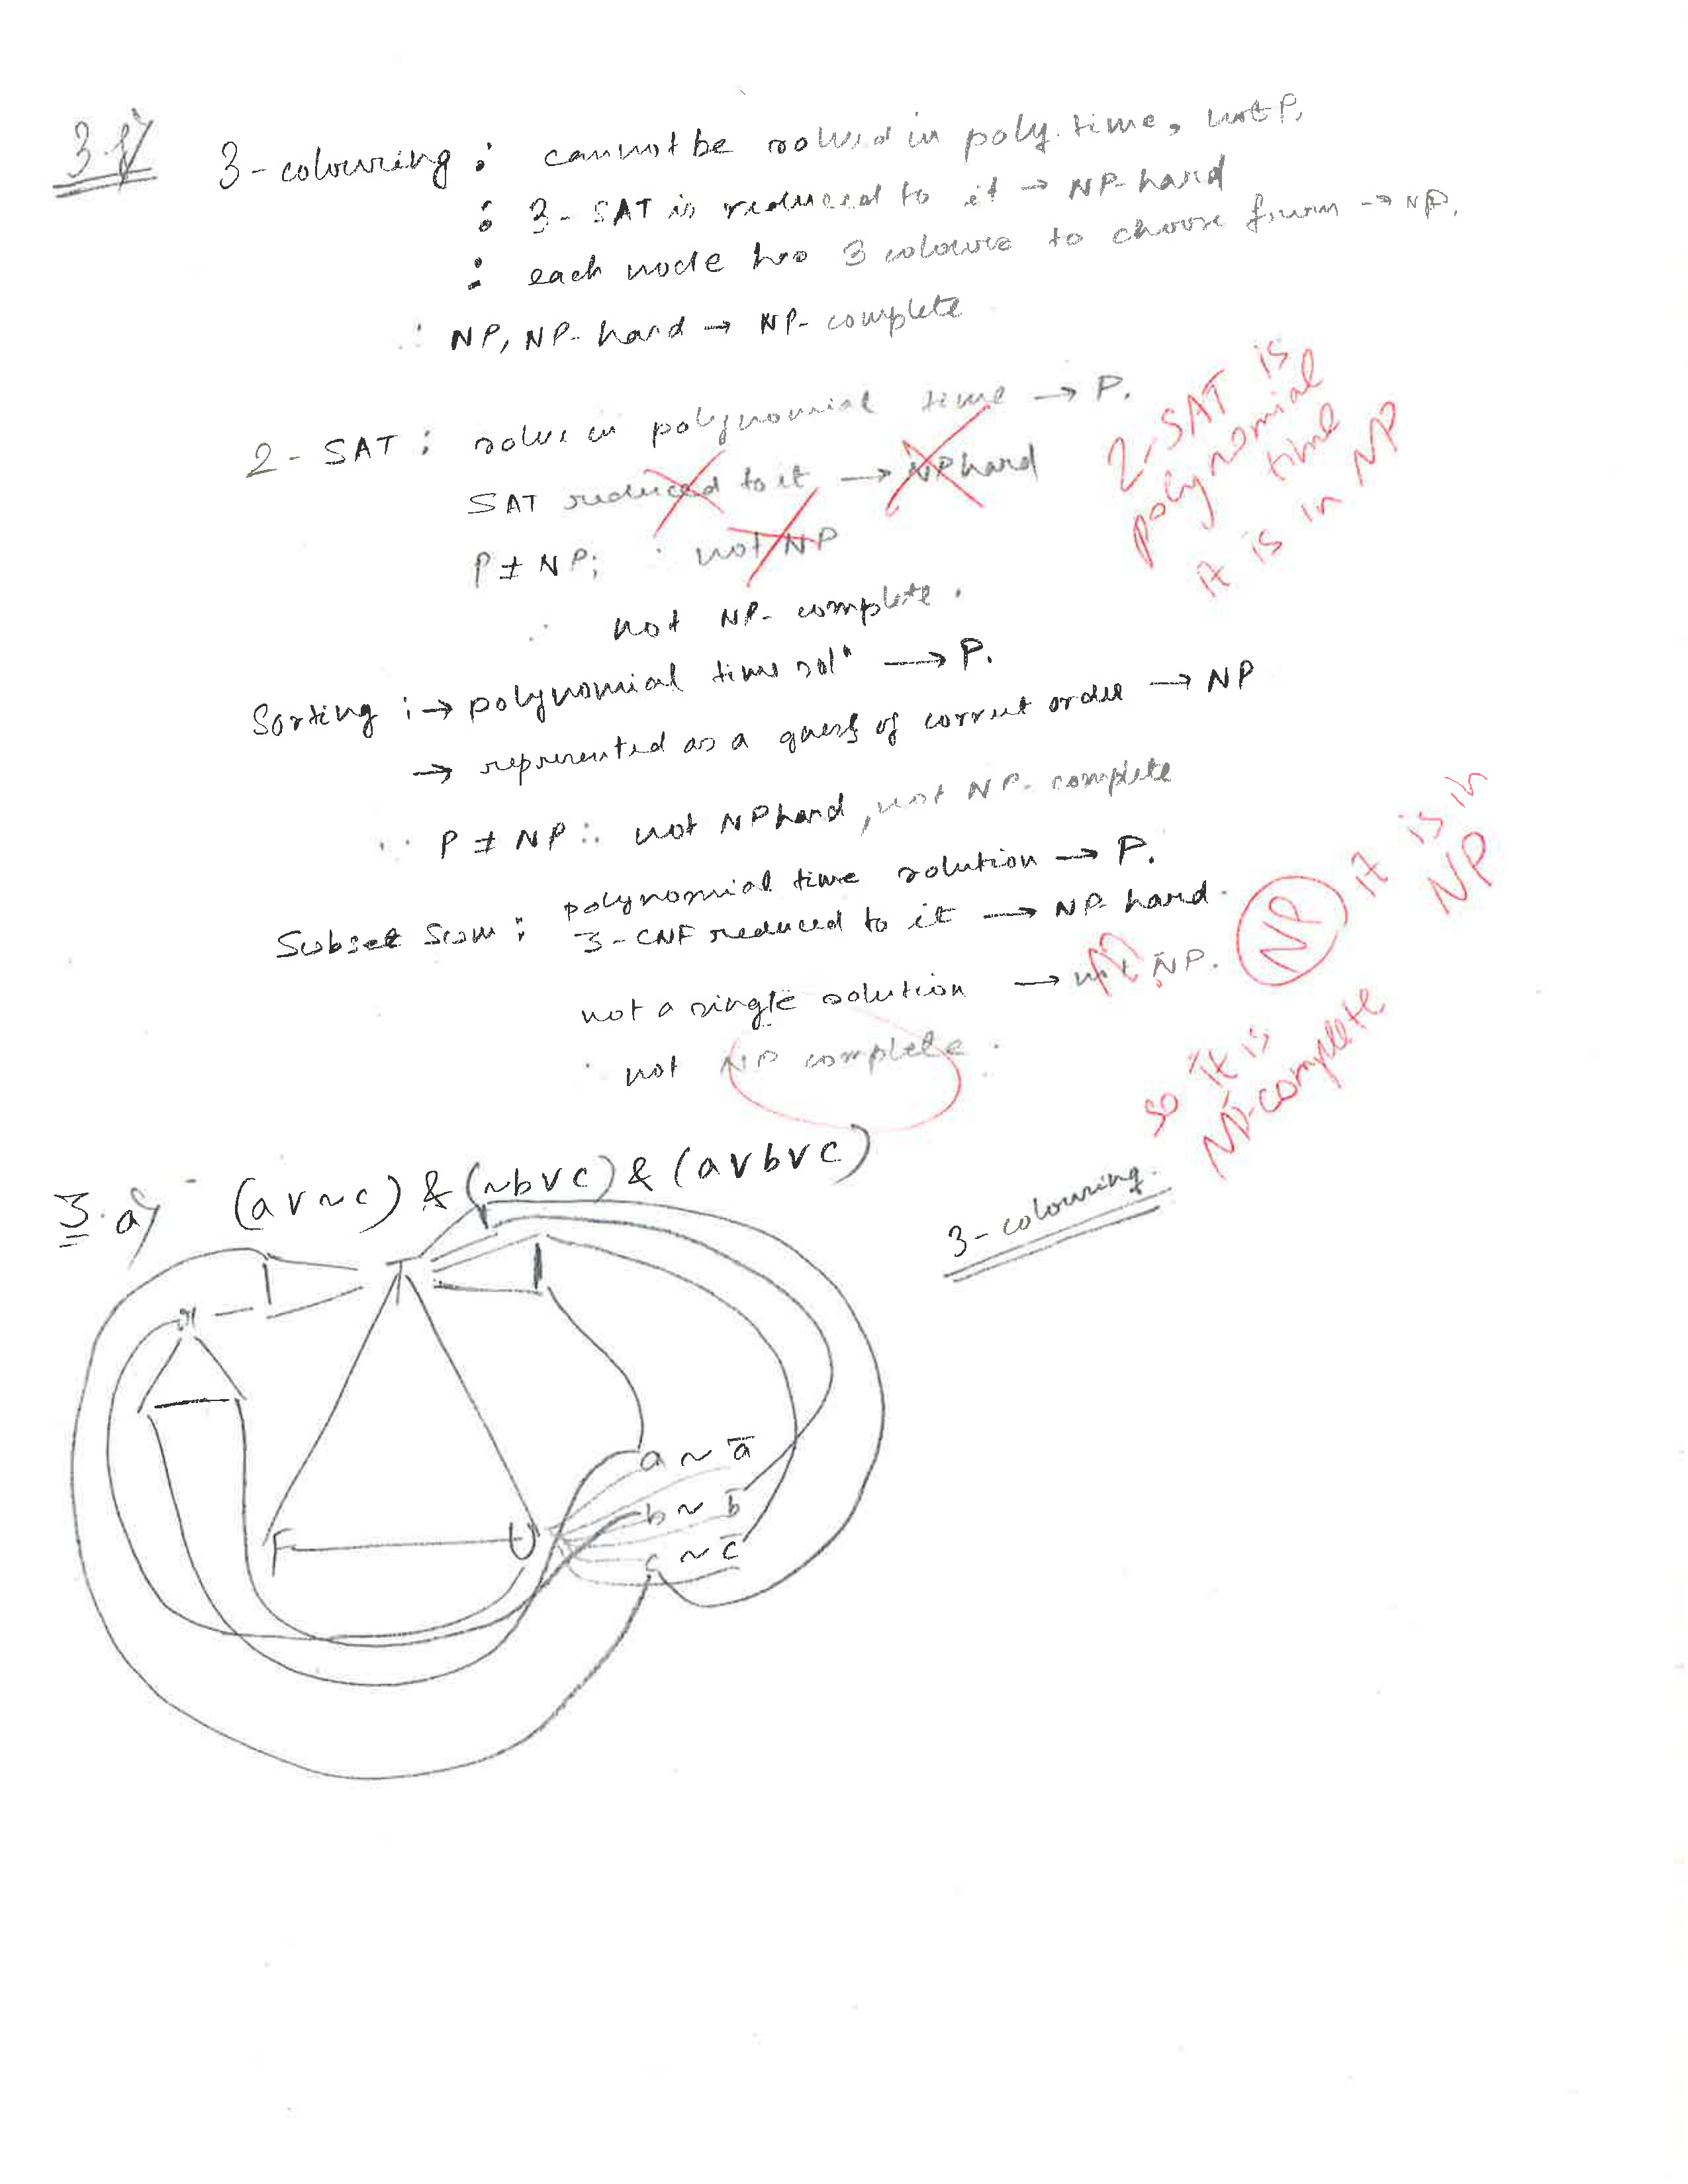 3.f)
3-colouring : cannot be solved in poly. time, not P.
: 3-SAT is reduced to it → NP-hard
: each node has 3 colours to choose from → NP.
∴ NP, NP-hard → NP-complete
2-SAT : solve in polynomial time → P.
SAT reduced to it → NP hard
P ≠ NP; ∴ not NP
∴ not NP-complete.
2-SAT is
polynomial
time
it is in NP
Sorting : → polynomial time solⁿ → P.
→ represented as a guess of correct order → NP
∵ P ≠ NP ∴ not NPhard, not NP-complete
Subset Sum : polynomial time solution → P.
3-CNF reduced to it → NP-hard.
not a single solution → not NP.
∴ not NP complete.
NP it is in
NP
so it is
NP-complete
3.a) (a v ~c) & (~b v c) & (a v b v c)
3-colouring.
T
a ~ a̅
b ~ b̅
F U
c ~ c̅